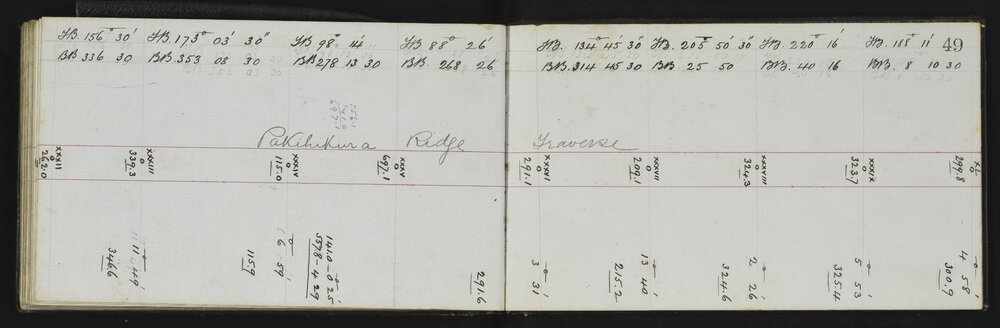 FB. 156° 30' FB. 173° 03' 30" FB 98° 14' FB 88° 26'
BB 336 30 BB. 353 03 30 BB 278 13 30 BB. 268 26
FB. 134° 45' 30" FB. 205° 50' 30" FB. 220° 16' FB. 188° 11' 49
BB. 314 45 30 BB 25 50 BB. 40 16 BB. 8 10 30
556.1
141.0
697.1
Pakihikura Ridge Traverse
XXXII
262.0
XXXIII
339.3
XXXIV
115.0
XXXV
697.1
XXXVI
291.1
XXXVII
209.1
XXXVIII
324.3
XXXIX
323.7
XL
299.8
11° 49'
346.6
6° 59'
115.9
141.0 - 0° 25'
557.8 - 4 29
291.6
3° 31'
13° 40'
215.2
2° 26'
324.6
5° 53'
325.4
4° 58'
300.9